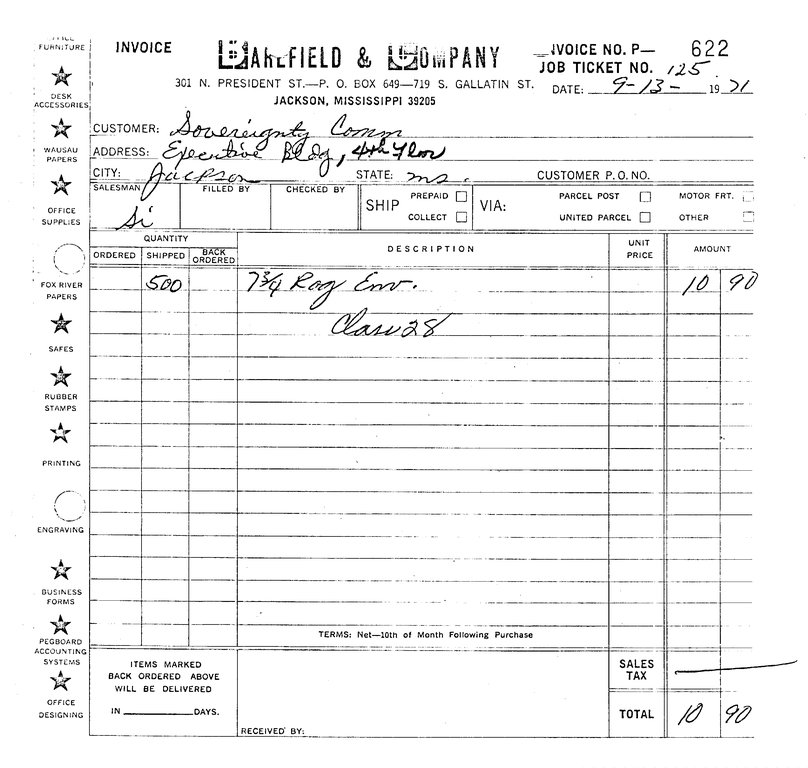 FURNITURE
DESK
ACCESSORIES
WAUSAU
PAPERS
OFFICE
SUPPLIES
FOX RIVER
PAPERS
SAFES
RUBBER
STAMPS
PRINTING
ENGRAVING
BUSINESS
FORMS
PEGBOARD
ACCOUNTING
SYSTEMS
OFFICE
DESIGNING
INVOICE
& COMPANY
301 N. PRESIDENT ST.—P. O. BOX 649—719 S. GALLATIN ST.
JACKSON, MISSISSIPPI 39205
VOICE NO. P— 622
JOB TICKET NO. 125
DATE: 9-13- 1971
CUSTOMER: Sovereignty Comm
ADDRESS: Executive Bldg, 4th Floor
CITY: Jackson STATE: ms. CUSTOMER P.O. NO.
SALESMAN Si FILLED BY CHECKED BY SHIP PREPAID COLLECT VIA: PARCEL POST UNITED PARCEL MOTOR FRT. OTHER
QUANTITY
ORDERED SHIPPED BACK ORDERED DESCRIPTION UNIT PRICE AMOUNT
500 7¾ Rag Env. 10 90
28
TERMS: Net—10th of Month Following Purchase
ITEMS MARKED
BACK ORDERED ABOVE
WILL BE DELIVERED
IN DAYS.
RECEIVED BY:
SALES
TAX —
TOTAL 10 90